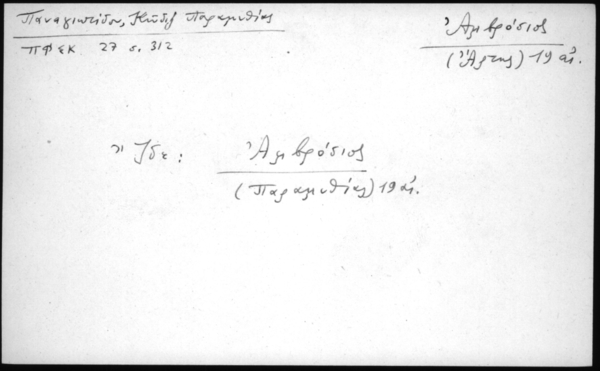 Παναγιωτίδου, Κώδιξ Παραμυθίας
ΠΦΣΚ 27 σ. 312
Ἀμβρόσιος
(Ἄρτης) 19 αἰ.
Ἴδε:
Ἀμβρόσιος
(Παραμυθίας) 19 αἰ.